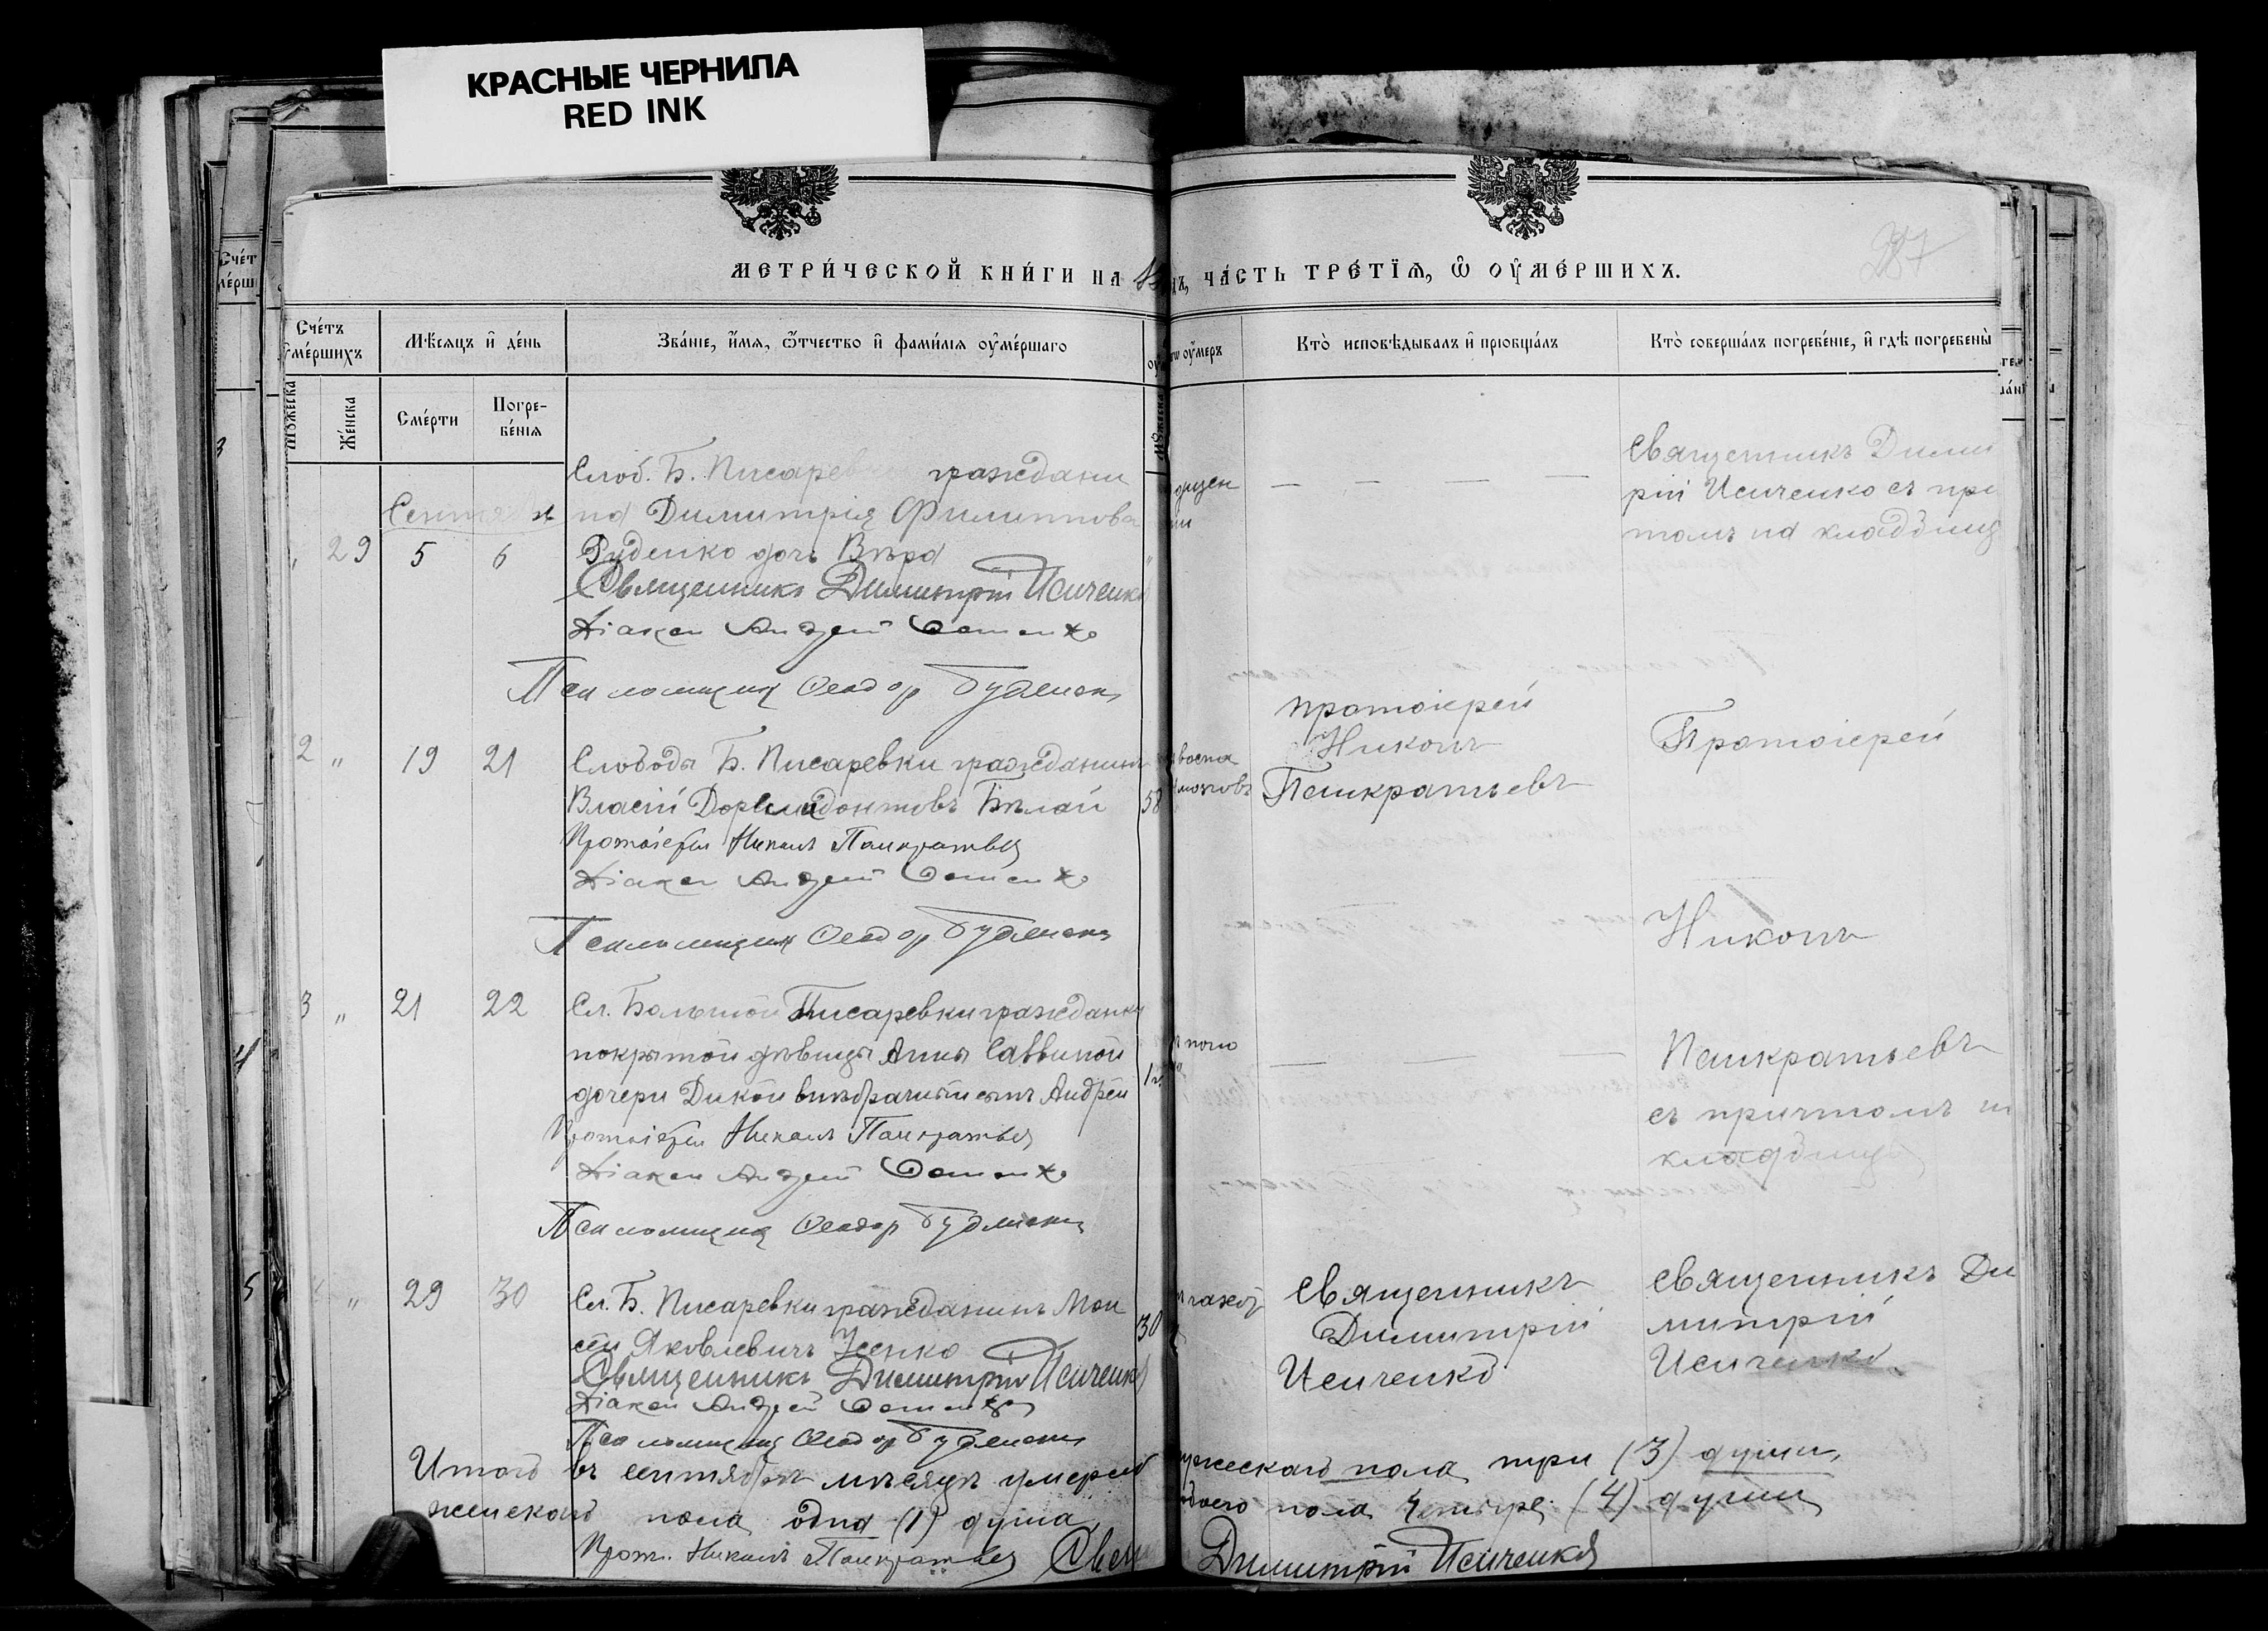 КРАСНЫЕ ЧЕРНИЛА
RED INK
МЕТРИ́ЧЕСКОЙ КНИ́ГИ НА
ЧА́СТЬ ТРЕ́ТЇѦ, Ѽ ОУ҆МЕ́РШИХЪ.
Сче́тъ оу҆ме́ршихъ
Мѣ́сяцъ и҆ де́нь
Зва́нїе, и҆́мя, ѻ҆́тчество и҆ фами́лїя оу҆ме́ршаго
оу҆́меръ
Кто̀ исповѣ́дывалъ и҆ прїобща́лъ
Кто̀ соверша́лъ погребе́нїе, и҆ гдѣ̀ погребены̀
Мꙋ́жеска
Же́нска
Сме́рти
Погре-
бе́нїя
Слоб. Б. Писаревки граждани
Сентября
на Димитрія Филиппова
29 5 6 Руденко дочь Вѣра
Священникъ Димитрій Исиченко
Діакон Андрей
Псаломщик Феодор
Священникъ Дими
рій Исиченко съ при
томъ на кладбищ
2 " 19 21 Слободы Б. Писаревки гражданинъ
Власій Дормидонтовъ Бѣлай 58
Протоіерей Никонъ Панкратьев
Діакон Андрей
Псаломщик Феодор
протоіерей
Никонъ
Панкратьевъ
Протоіерей
Никонъ
Панкратьевъ
съ причтомъ
3 " 21 22 Сл. Большой Писаревки гражданки
покрытой дѣвицы Анны Саввиной
дочери Дикой внѣбрачный сынъ Андрей
Протоіерей Никонъ Панкратьев
Діакон Андрей
Псаломщик Феодор
" 29 30 Сл. Б. Писаревки гражданинъ Мои
сей Яковлевичъ Усенко 30
Священникъ Димитрій Исиченко
Діакон Андрей
Псаломщик Феодор
Священникъ
Димитрій
Исиченко
Священникъ Ди
митрій
Исиченко
Итого въ сентябрѣ мѣсяцѣ умерло мужескаго пола три (3) души,
женскаго пола одна (1) душа, обоего пола четыре (4) души
Прот. Никонъ Панкратьев Свящ Димитрій Исиченко